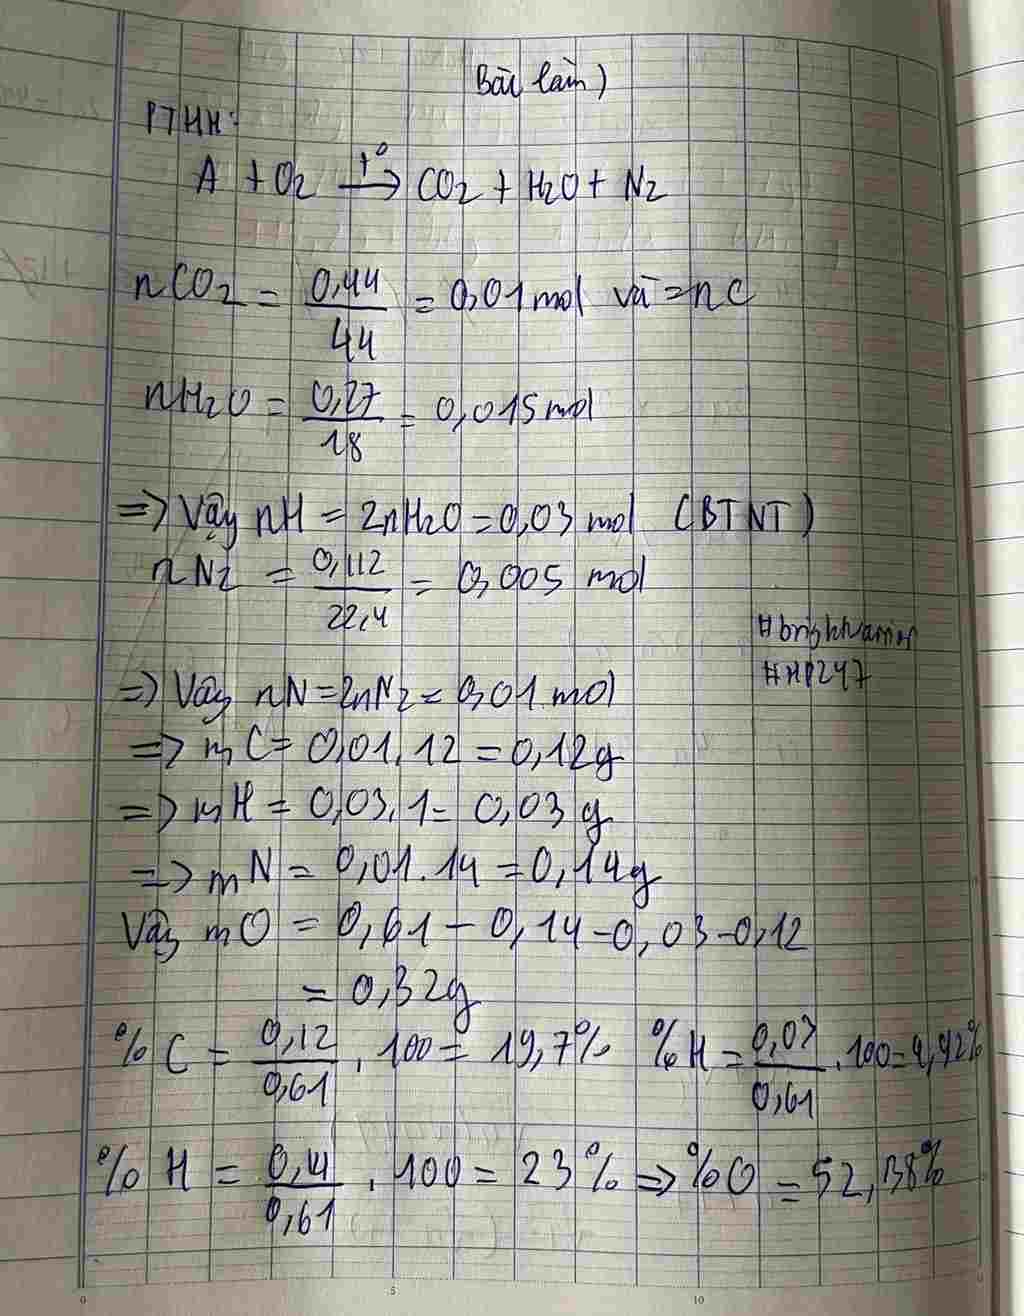 Bài làm)
PTHH:
A + O2 t° → CO2 + H2O + N2
nCO2 = 0,44/44 = 0,01 mol và = nC
nH2O = 0,27/18 = 0,015 mol
=> Vậy nH = 2nH2O = 0,03 mol (BTNT)
nN2 = 0,112/22,4 = 0,005 mol
#HP247
=> Vậy nN = 2nN2 = 0,01 mol
=> mC = 0,01.12 = 0,12g
=> mH = 0,03.1 = 0,03g
=> mN = 0,01.14 = 0,14g
Vậy mO = 0,61 - 0,14 - 0,03 - 0,12
= 0,32g
%C = 0,12/0,61 . 100 = 19,7% %H = 0,03/0,61 . 100 = 4,92%
%H = 0,14/0,61 . 100 = 23% => %O = 52,38%
0 5 10